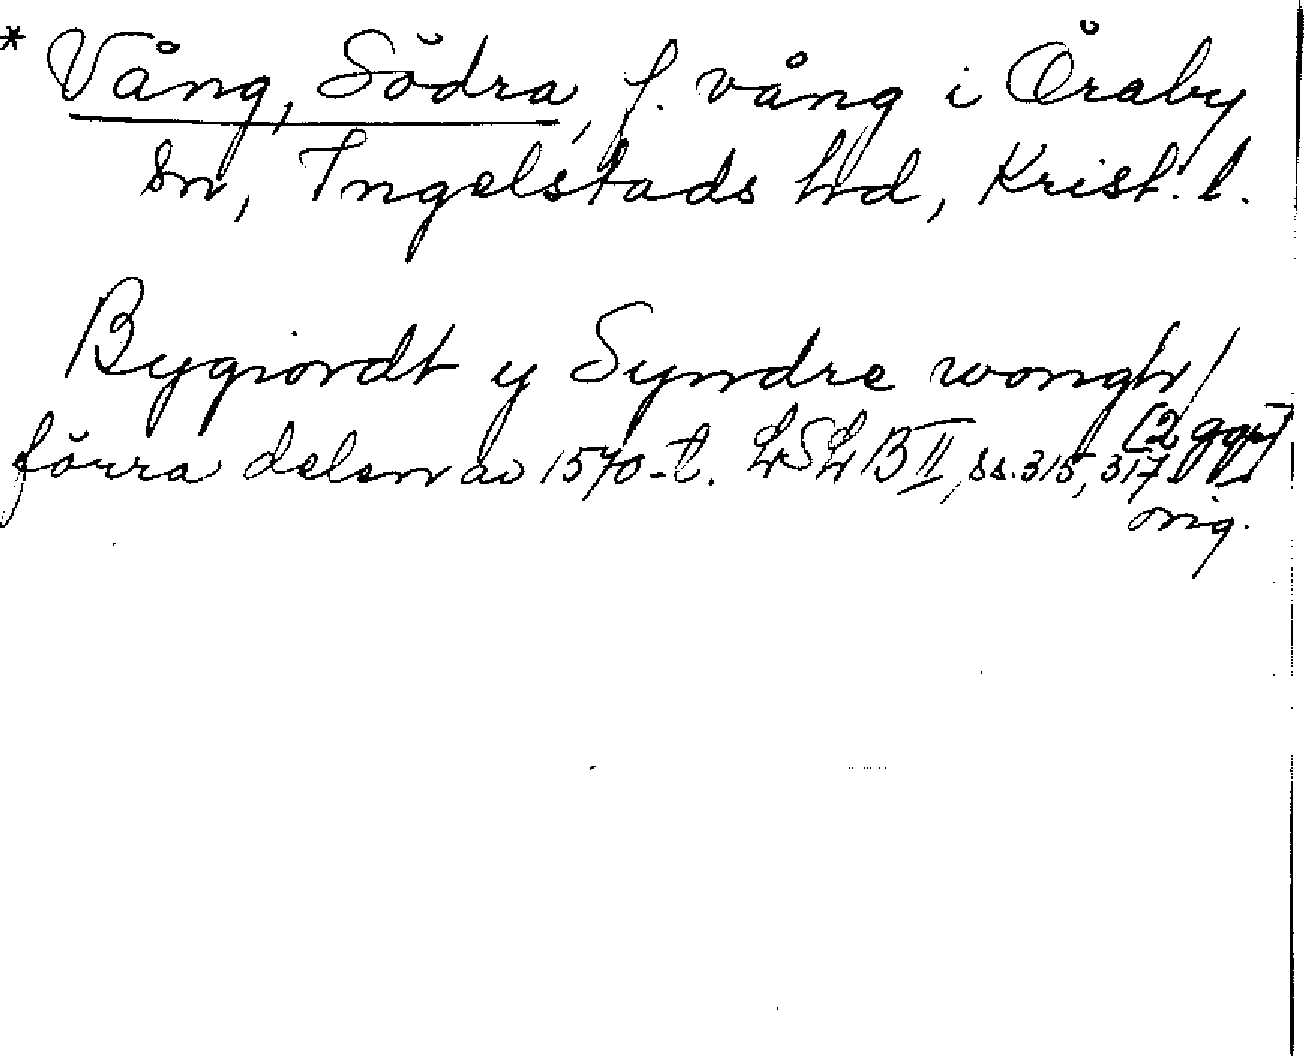 * Vång, Södra, f. vång i Öraby
sn, Ingelstads hd, Krist. l.
Bygiordt y Syndre wongh/
förra delen av 1570-t. LSLB II, ss. 315, 317 [2 ggr]
orig.